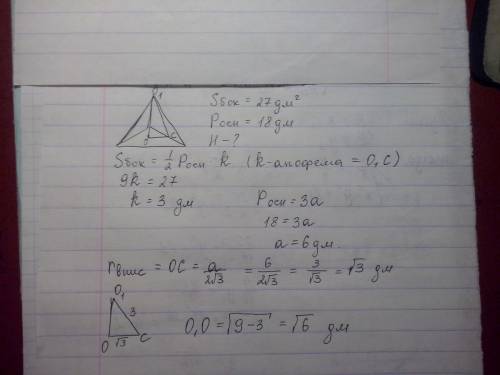 O1
O
C
Sбок = 27 дм²
Pосн = 18 дм
H - ?
Sбок = 1/2 Pосн k (k-апофема = O1C)
9k = 27
k = 3 дм
Pосн = 3a
18 = 3a
a = 6 дм.
rвпис = OC = a/2√3 = 6/2√3 = 3/√3 = √3 дм
O1
3
O √3 C
O1O = √9-3 = √6 дм